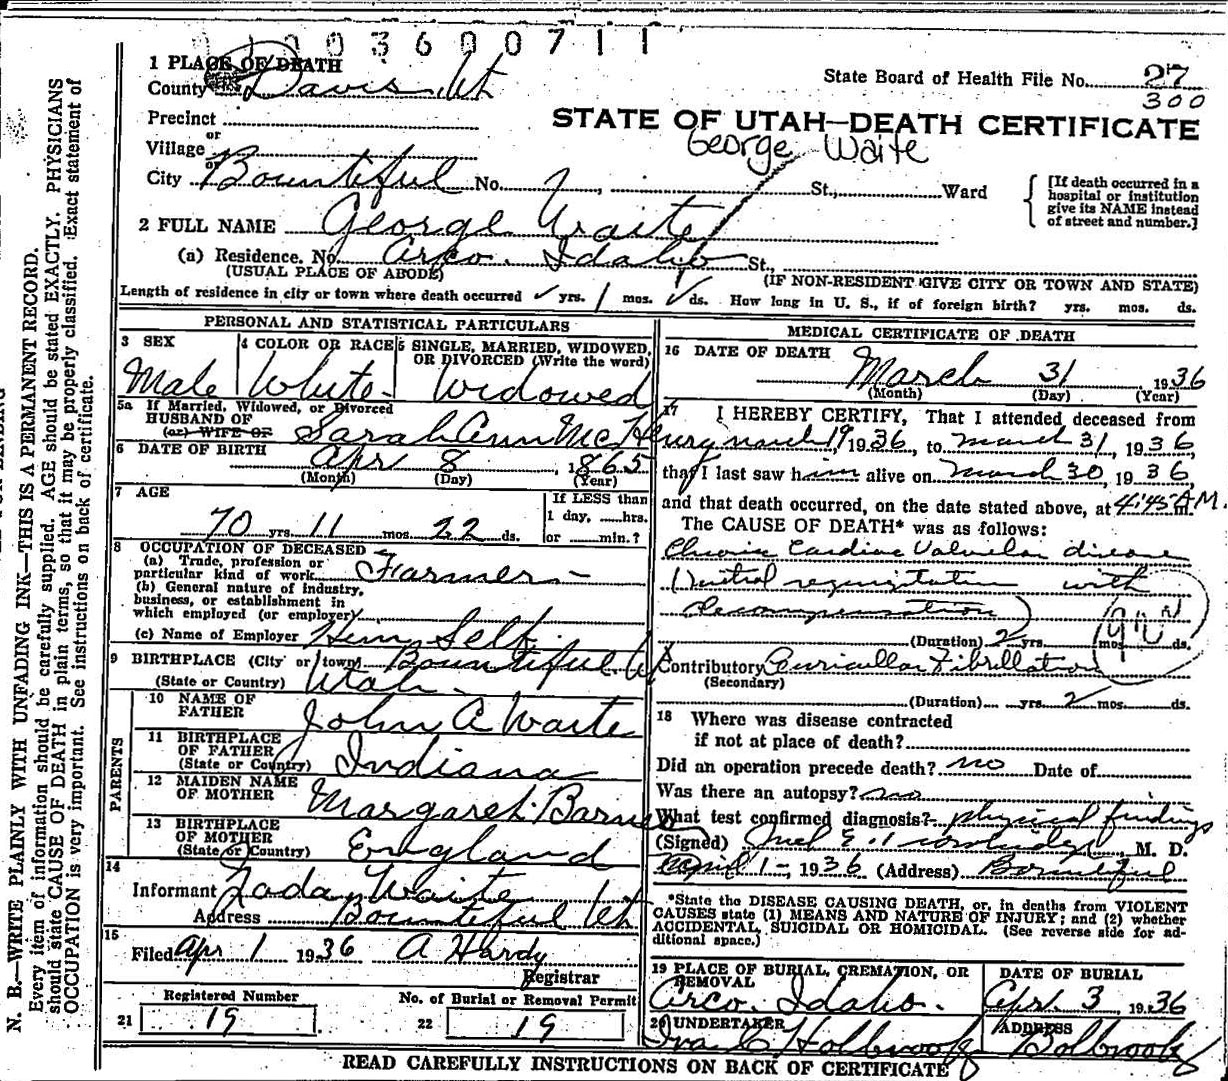 0 1 0 0 3 6 0 0 7 1 1
1 PLACE OF DEATH
County Davis Ut
State Board of Health File No. 27
300
STATE OF UTAH—DEATH CERTIFICATE
George Waite
Precinct
or
Village
or
City Bountiful No. St., Ward
[If death occurred in a hospital or institution give its NAME instead of street and number.]
2 FULL NAME George Waite
(a) Residence. No. Arco. Idaho St.,
(USUAL PLACE OF ABODE) (IF NON-RESIDENT GIVE CITY OR TOWN AND STATE)
Length of residence in city or town where death occurred ✓ yrs. 1 mos. ✓ ds. How long in U. S., if of foreign birth? yrs. mos. ds.
PERSONAL AND STATISTICAL PARTICULARS
3 SEX
Male
4 COLOR OR RACE
White
5 SINGLE, MARRIED, WIDOWED,
OR DIVORCED (Write the word)
Widowed
5a If Married, Widowed, or Divorced
HUSBAND OF
(or) WIFE OF Sarah Ann McHenry
6 DATE OF BIRTH Apr 8, 1865
(Month) (Day) (Year)
7 AGE
70 yrs. 11 mos. 22 ds.
If LESS than
1 day, ......hrs.
or ......min.?
8 OCCUPATION OF DECEASED
(a) Trade, profession or
particular kind of work Farmer
(b) General nature of industry,
business, or establishment in
which employed (or employer)
(c) Name of Employer Him Self
9 BIRTHPLACE (City or town) Bountiful Ut
(State or Country) Utah
PARENTS
10 NAME OF
FATHER John A Waite
11 BIRTHPLACE
OF FATHER
(State or Country) Indiana
12 MAIDEN NAME
OF MOTHER Margaret Barnes
13 BIRTHPLACE
OF MOTHER
(State or Country) England
14
Informant Zada Waite
Address Bountiful Ut
15
Filed Apr 1 1936 A Hardy
Registrar
Registered Number
21 19
No. of Burial or Removal Permit
22 19
MEDICAL CERTIFICATE OF DEATH
16 DATE OF DEATH
March 31, 1936
(Month) (Day) (Year)
17 I HEREBY CERTIFY, That I attended deceased from
March 19, 1936, to March 31, 1936,
that I last saw him alive on March 30, 1936,
and that death occurred, on the date stated above, at 4:45 A.M.
The CAUSE OF DEATH* was as follows:
Chronic Cardiac Valvular disease
(Mitral regurgitation with
decompensation)
(Duration) 2 yrs. mos. ds.
Contributory Auricular Fibrillation
(Secondary)
(Duration) yrs. 2 mos. ds.
18 Where was disease contracted
if not at place of death?
Did an operation precede death? no Date of
Was there an autopsy? no
What test confirmed diagnosis? physical findings
(Signed) M. D.
April 1-, 1936 (Address) Bountiful
*State the DISEASE CAUSING DEATH, or, in deaths from VIOLENT
CAUSES state (1) MEANS AND NATURE OF INJURY; and (2) whether
ACCIDENTAL, SUICIDAL OR HOMICIDAL. (See reverse side for ad-
ditional space.)
19 PLACE OF BURIAL, CREMATION, OR
REMOVAL
Arco. Idaho.
DATE OF BURIAL
Apr. 3 1936
20 UNDERTAKER
Holbrook
ADDRESS
READ CAREFULLY INSTRUCTIONS ON BACK OF CERTIFICATE
N. B.—WRITE PLAINLY WITH UNFADING INK—THIS IS A PERMANENT RECORD.
Every item of information should be carefully supplied. AGE should be stated EXACTLY. PHYSICIANS
should state CAUSE OF DEATH in plain terms, so that it may be properly classified. Exact statement of
OCCUPATION is very important. See instructions on back of certificate.